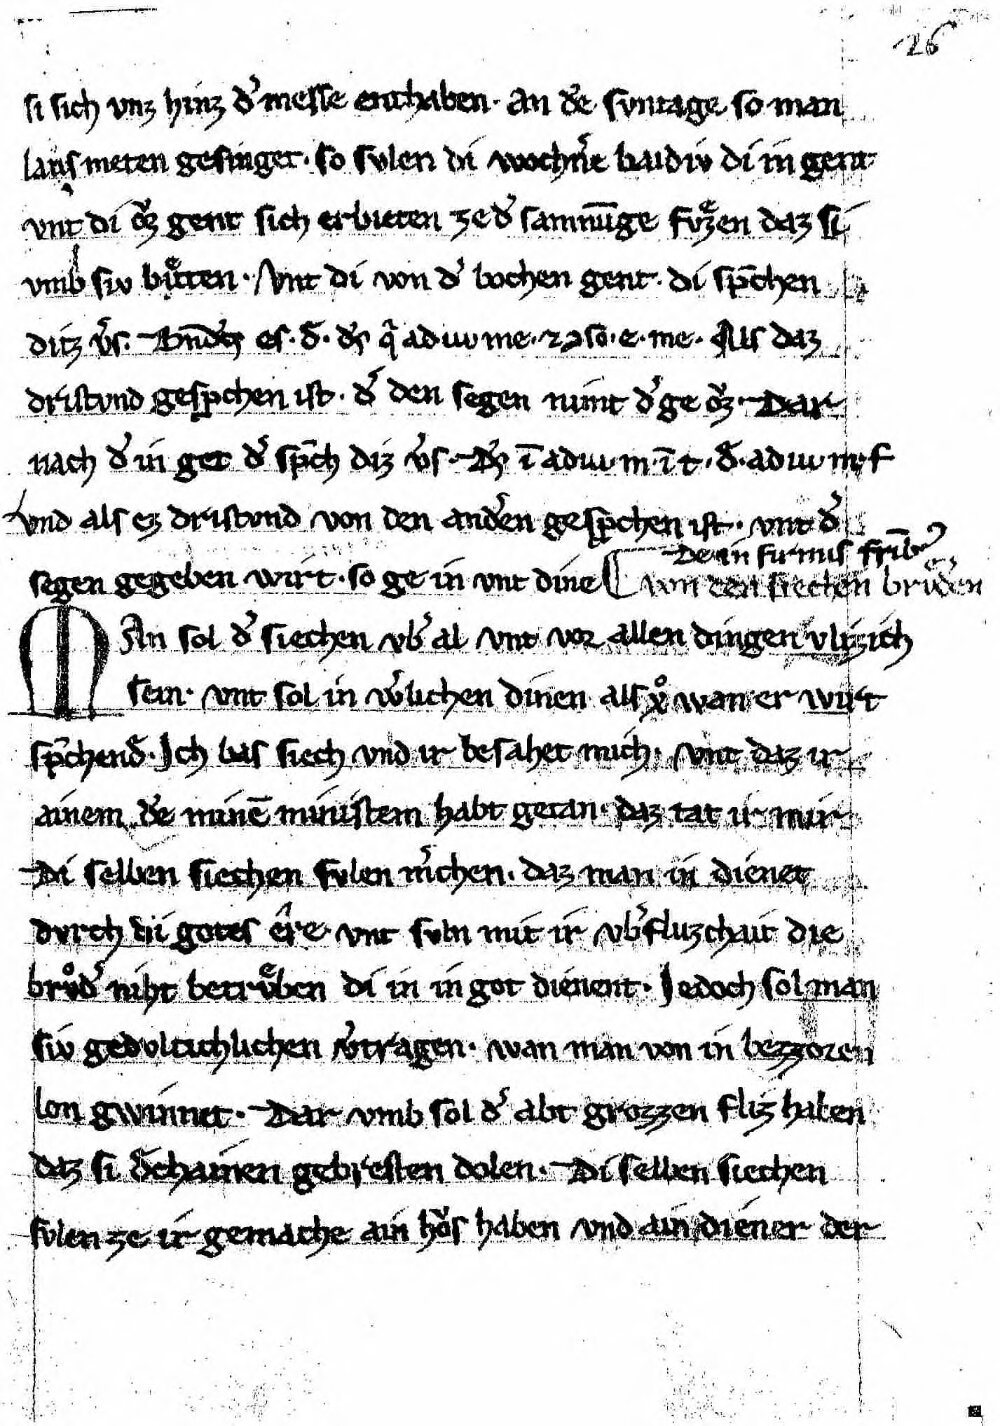 26
si sich vnz hinz d᷑ messe enthaben. An dē svntage so man
laus meten gesinget. so svlen di wochn᷑e baidiv di in gent
vnt di oͮz gent sich erbieten ze d᷑ samnūge fvͤzen daz si
vmb siv bitͤten. Vnt di von d᷑ wochen gent. di sp᷑chen
ditz v᷑s. es. d᷑. qͥ adiuu me. ⁊ ↄso. e. me. Als daz
dristvnd gesp᷑chen ist. d᷑ den segen nimt d᷑ ge oͮz. Dar
nach d᷑ in get d᷑ sp᷑ch diz v᷑s. D᷑s ī adiuu. m. ī t. d᷑. adiuu. m. f
vnd als ez dristvnd von den and᷑en gesp᷑chen ist. vnt d᷑
De in firmis fr̄ib᷒
segen gegeben wirt. so ge in vnt dine von den siechen brvͦd᷑en
MAn sol d᷑ siechen vb᷑ al vnt vor allen dingen vlizich
sein. vnt sol in w᷑lichen dinen als xͦ wan er wirt
sp᷑chend᷑. Ich bas siech vnd ir besahet mich. vnt daz ir
ainem d᷑e minē ministem habt getan. daz tat ir mir
Di selben siechen svlen m᷑chen. daz man in dienet
dvrch di gotes êre. vnt svln mit ir vb᷑flvzchait die
brvͦd᷑ niht betrvͤben di in in got dienent. Jedoch sol man
siv gedvltichlichen v᷑tragen. wan man von in bezzoren
lon gwinnet. Dar vmb sol d᷑ abt grozzen fliz haben
daz si d᷑chainen gebresten dolen. Di selben siechen
svlen ze ir gemache ain hoͮs haben vnd ain diener der